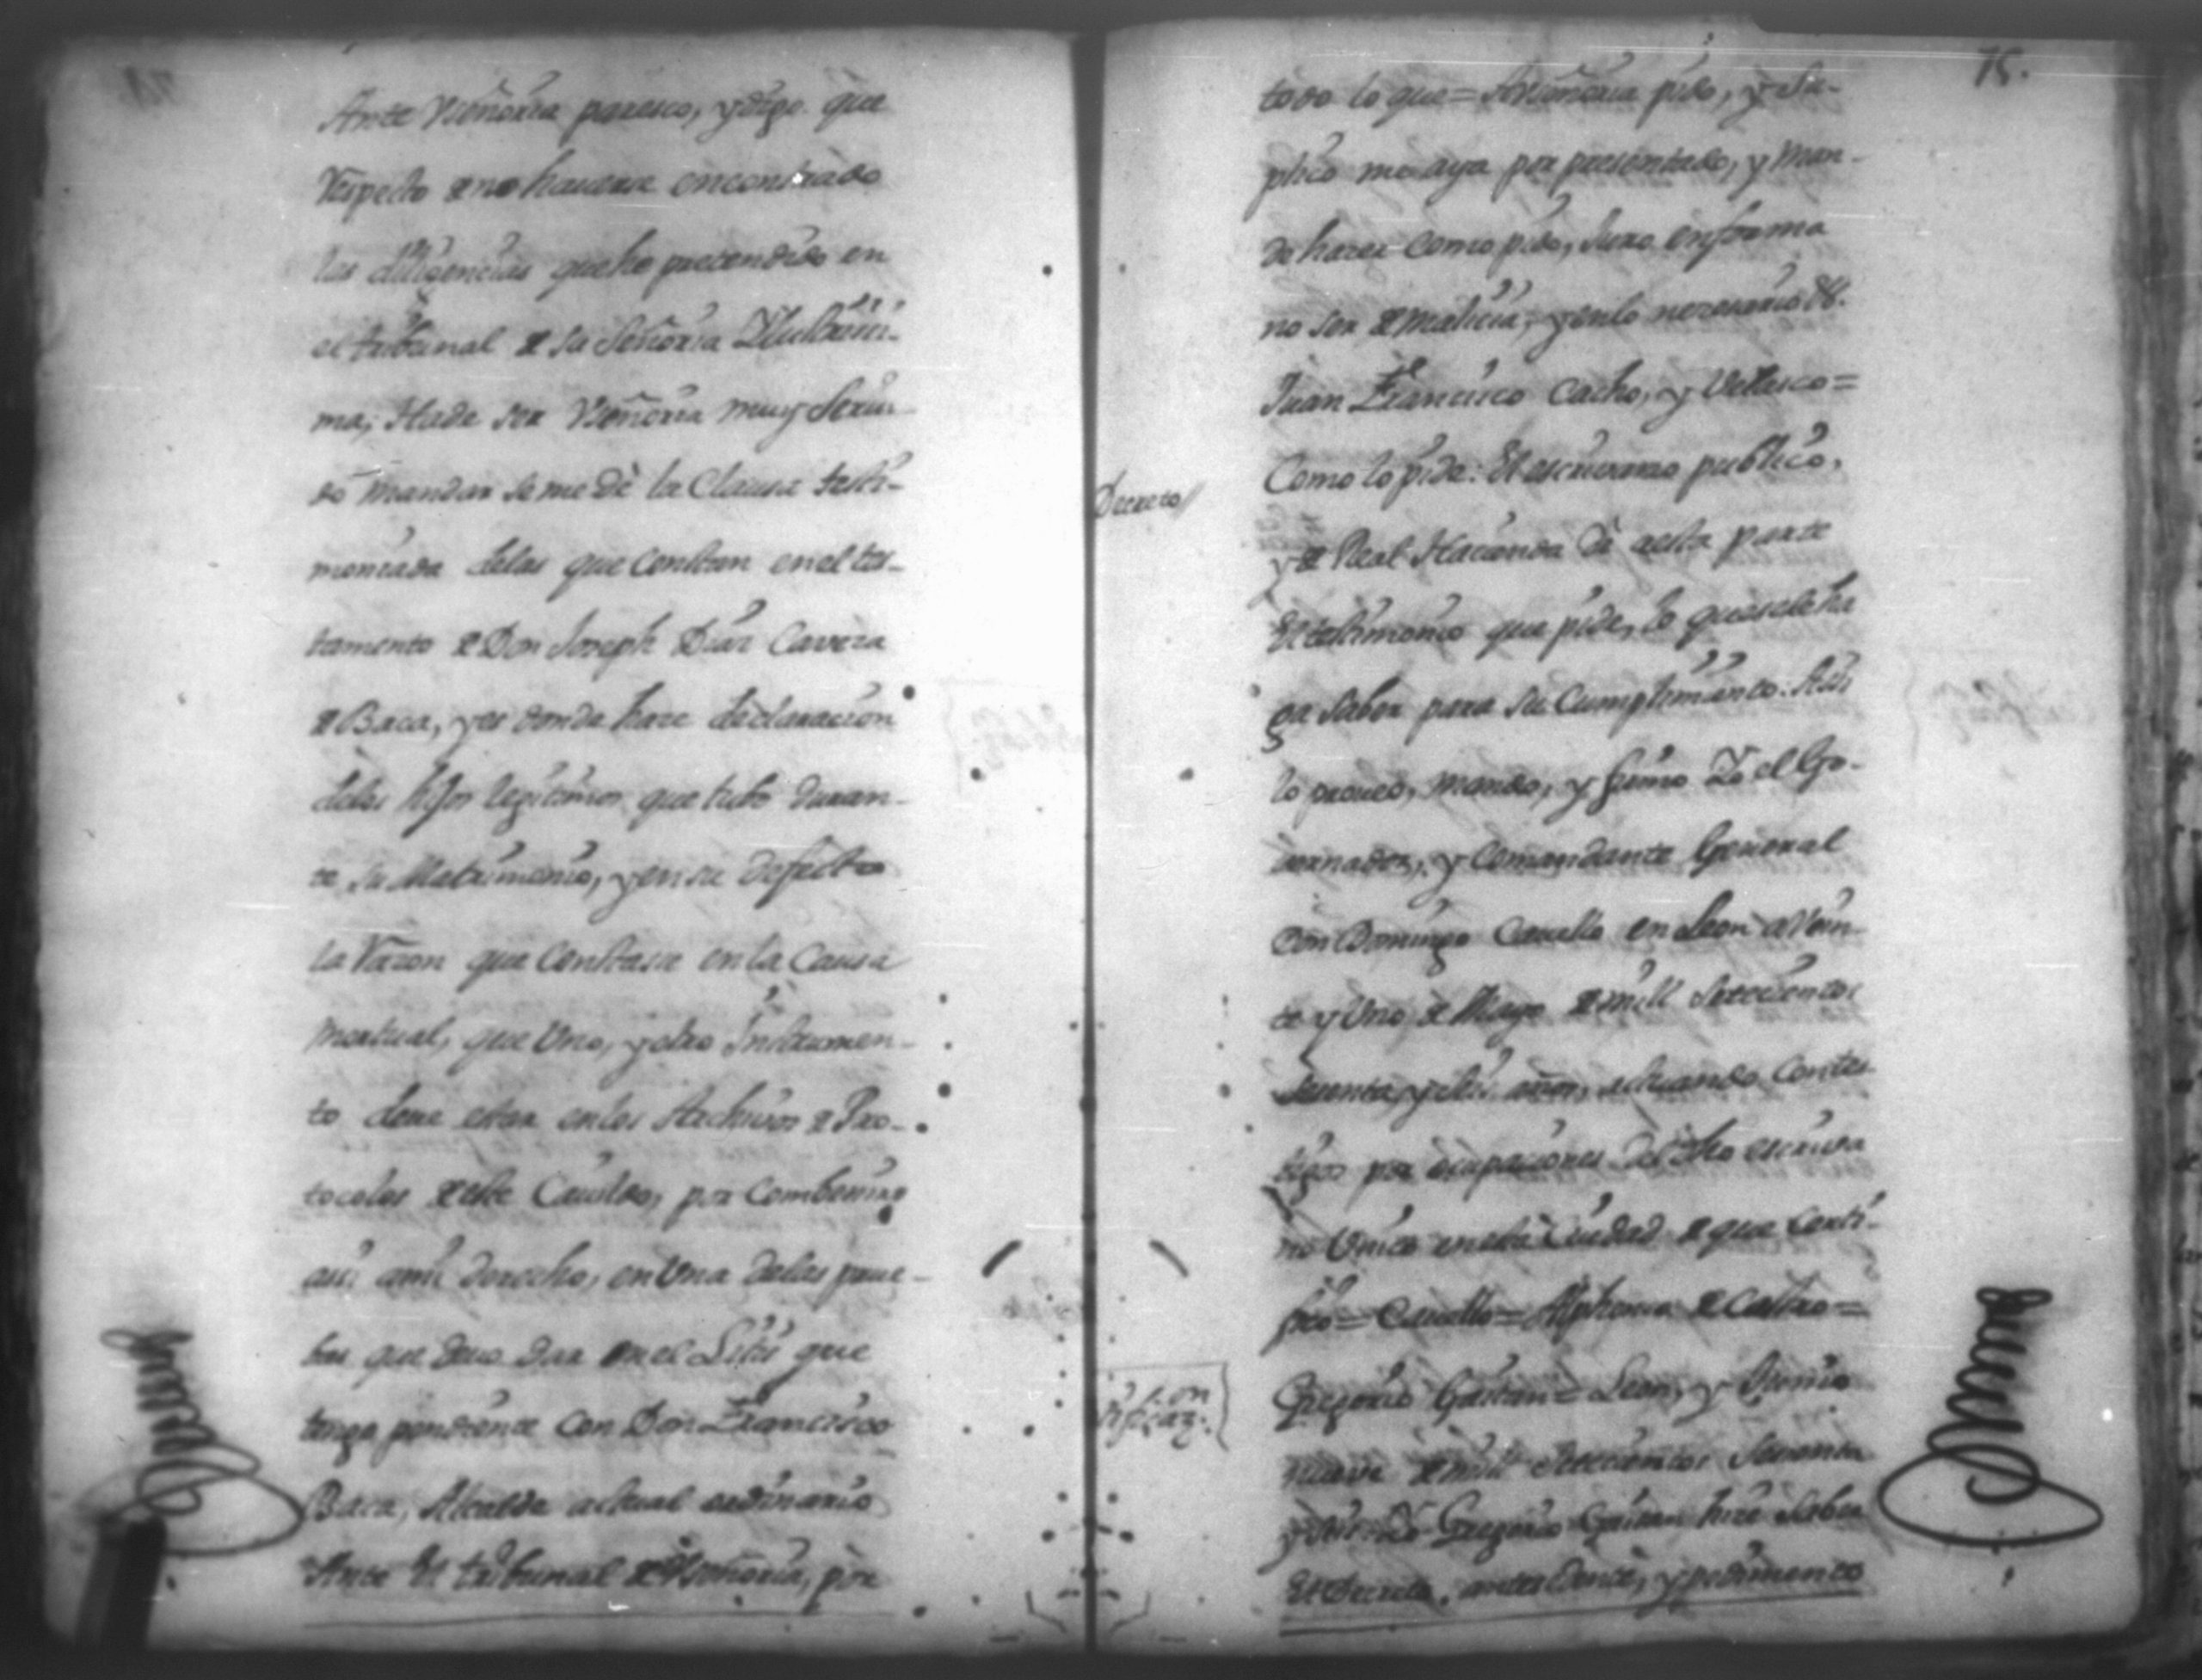 Ante Vseñoria paresco, y digo que
Respecto de no haverse encontrado
las diligencias que he pretendido en
el tribunal de su Señoria Yllustrisi-
ma; Hade ser Vseñoria muy Servi-
do mandar se me dè la Clausa testi-
moniada delas que constan en el tes-
tamento de Don Joseph Diaz Caveza
de Baca, y es donde haze declaracion
delos hijos legitimos que tubo duran-
te su Matrimonio, y en su defecto
la Razon que Constase en la Causa
mortual, que Uno, y otro Instrumen-
to deve estar en los Archivos de Pro-
tocolos de este Cavildo, por Combenirme
asi ami derecho, en Una delas prue-
bas que devo dar en el Litis que
tengo pendiente con Don Francisco
Baca, Alcalde actual ordinario
Ante El tribunal de Vseñoria, por
75.
todo lo que = A Vseñoria pido, y Su-
plico me aya por presentado, y Man-
de hazer como pido, Juro en forma
no ser de malicia, y en lo nezesario &a.
Juan Francisco Cacho, y Vellasco =
Decreto
Como lo pide: El escrivano publico,
y de Real Hacienda dè a esta parte
El testimonio que pide, lo que se le ha
ga saber para su Cumplimiento. Asi
lo proveo, mando, y firmo Yo el Go-
vernador, y Comandante General
Don Domingo Cavello en Leon a Vein-
te y Uno de Mayo de mill Setecientos
Sesenta, y seis años, actuando con tes-
tigos por ocupaciones del dho escriva
no Unico en esta Ciudad de que Certi-
fico = Cavello = Alphonso de Castro =
Gregorio Gaitan = Leon, y Junio
nueve de mill Setecientos Sesenta
y seis Yo Gregorio Gaitan hize saber
El Decreto, antecedente, y pedimento